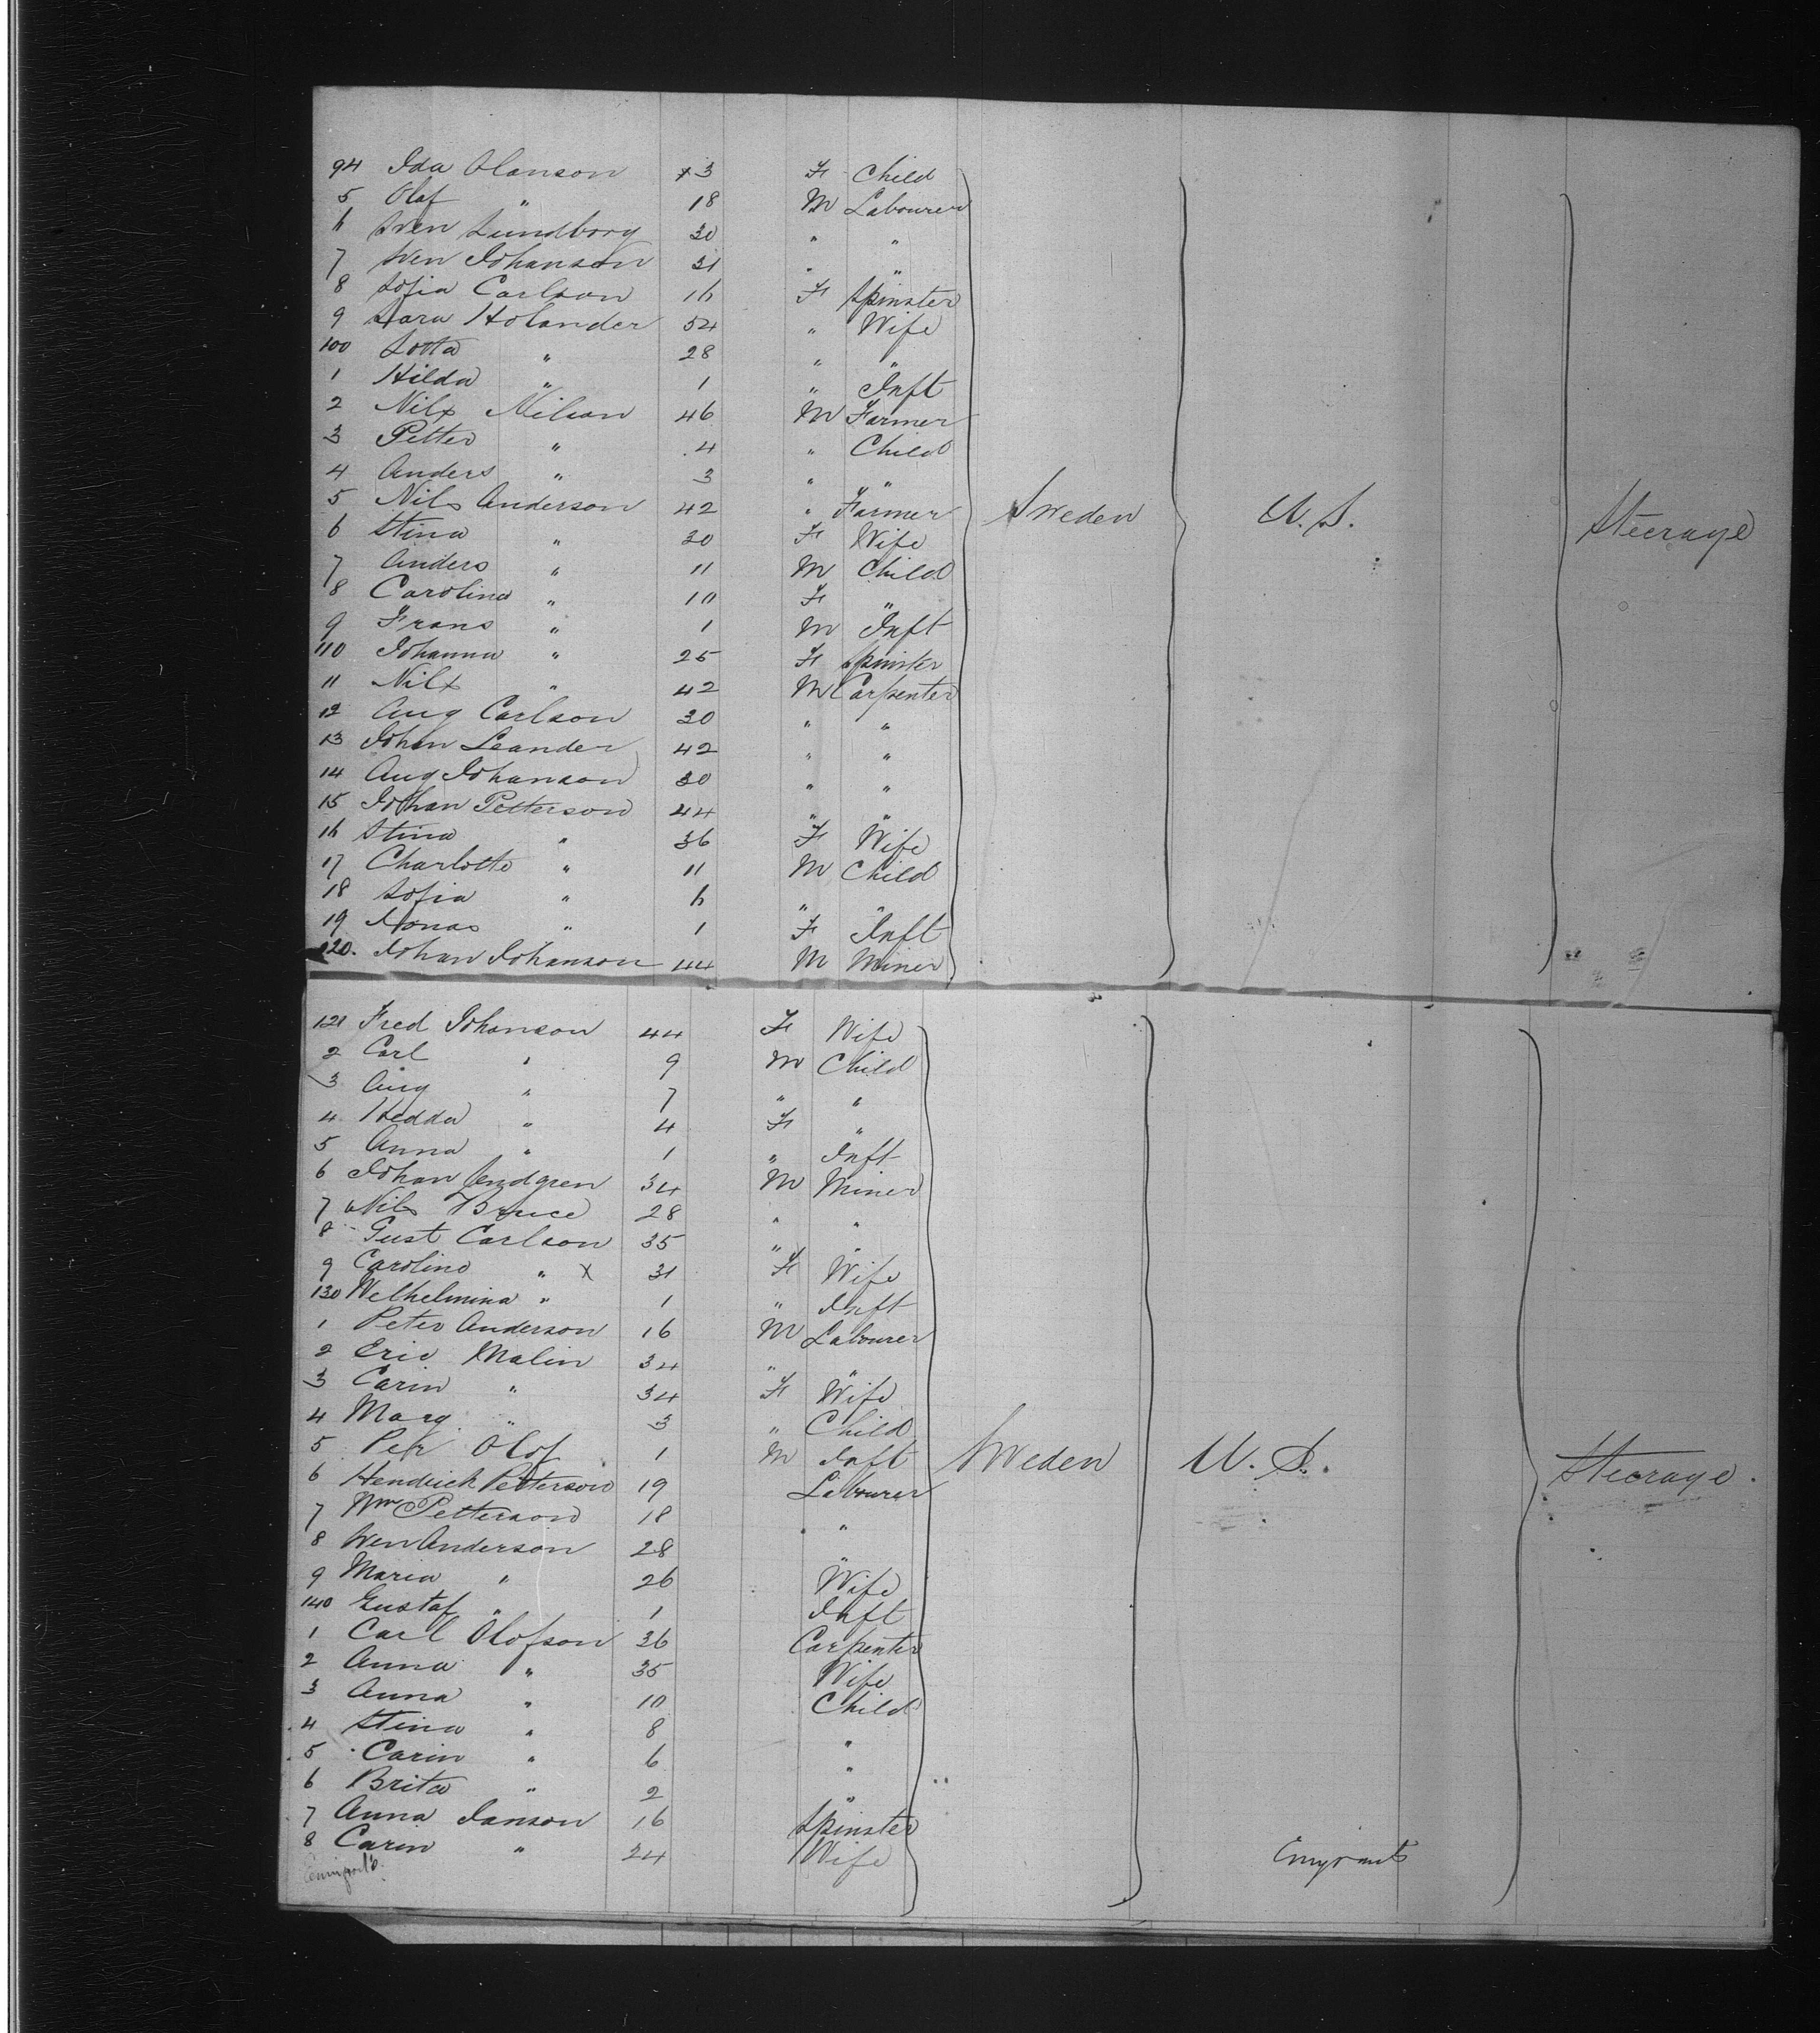 94 Ida Olanson 3 F Child
5 Olof " 18 M Labourer
6 Sven Lundborg 30 " "
7 Sven Johanson 31 " "
8 Sofia Carlson 16 F Spinster
9 Sara Holander 54 " Wife
100 Lotta " 28 " "
1 Hilda " 1 " Inft
2 Nils Nilson 46 M Farmer
3 Petter " 4 " Child
4 Anders " 3 " "
5 Nils Anderson 42 " Farmer Sweden U.S. Steerage
6 Stina " 30 F Wife
7 Anders " 11 M Child
8 Carolina " 10 F "
9 Frans " 1 M Inft
110 Johanna " 25 F Spinster
11 Nils " 42 M Carpenter
12 Aug Carlson 30 " "
13 Johan Leander 42 " "
14 Aug Johanson 30 " "
15 Johan Petterson 44 " "
16 Stina " 36 F Wife
17 Charlotte " 11 M Child
18 Sofia " 6 " "
19 Jonas " 1 F Inft
120. Johan Johanson 44 M Miner
121 Fred Johanson 44 F Wife
2 Carl " 9 M Child
3 Aug " 7 " "
4 Hedda " 4 F "
5 Anna " 1 " Inft
6 Johan 34 M Miner
7 Nils Bruce 28 " "
8 Gust Carlson 35 " "
9 Carolina " X 31 F Wife
130 Welhelmina " 1 " Inft
1 Peter Anderson 16 M Labourer
2 Eric Malin 34 " "
3 Carin " 34 F Wife
4 Marg " 3 " Child
5 Per Olof 1 M Inft Sweden U.S. Steerage.
6 Hendrick Petterson 19 Labourer
7 Wm Petterson 18 "
8 Sven Anderson 28 "
9 Maria " 26 Wife
140 Gustaf " 1 Inft
1 Carl Olofson 36 Carpenter
2 Anna " 35 Wife
3 Anna " 10 Child
4 Stina " 8 "
5 Carin " 6 "
6 Brita " 2 "
7 Anna Janson 16 Spinster
8 Carin " 24 Wife
Emigrants